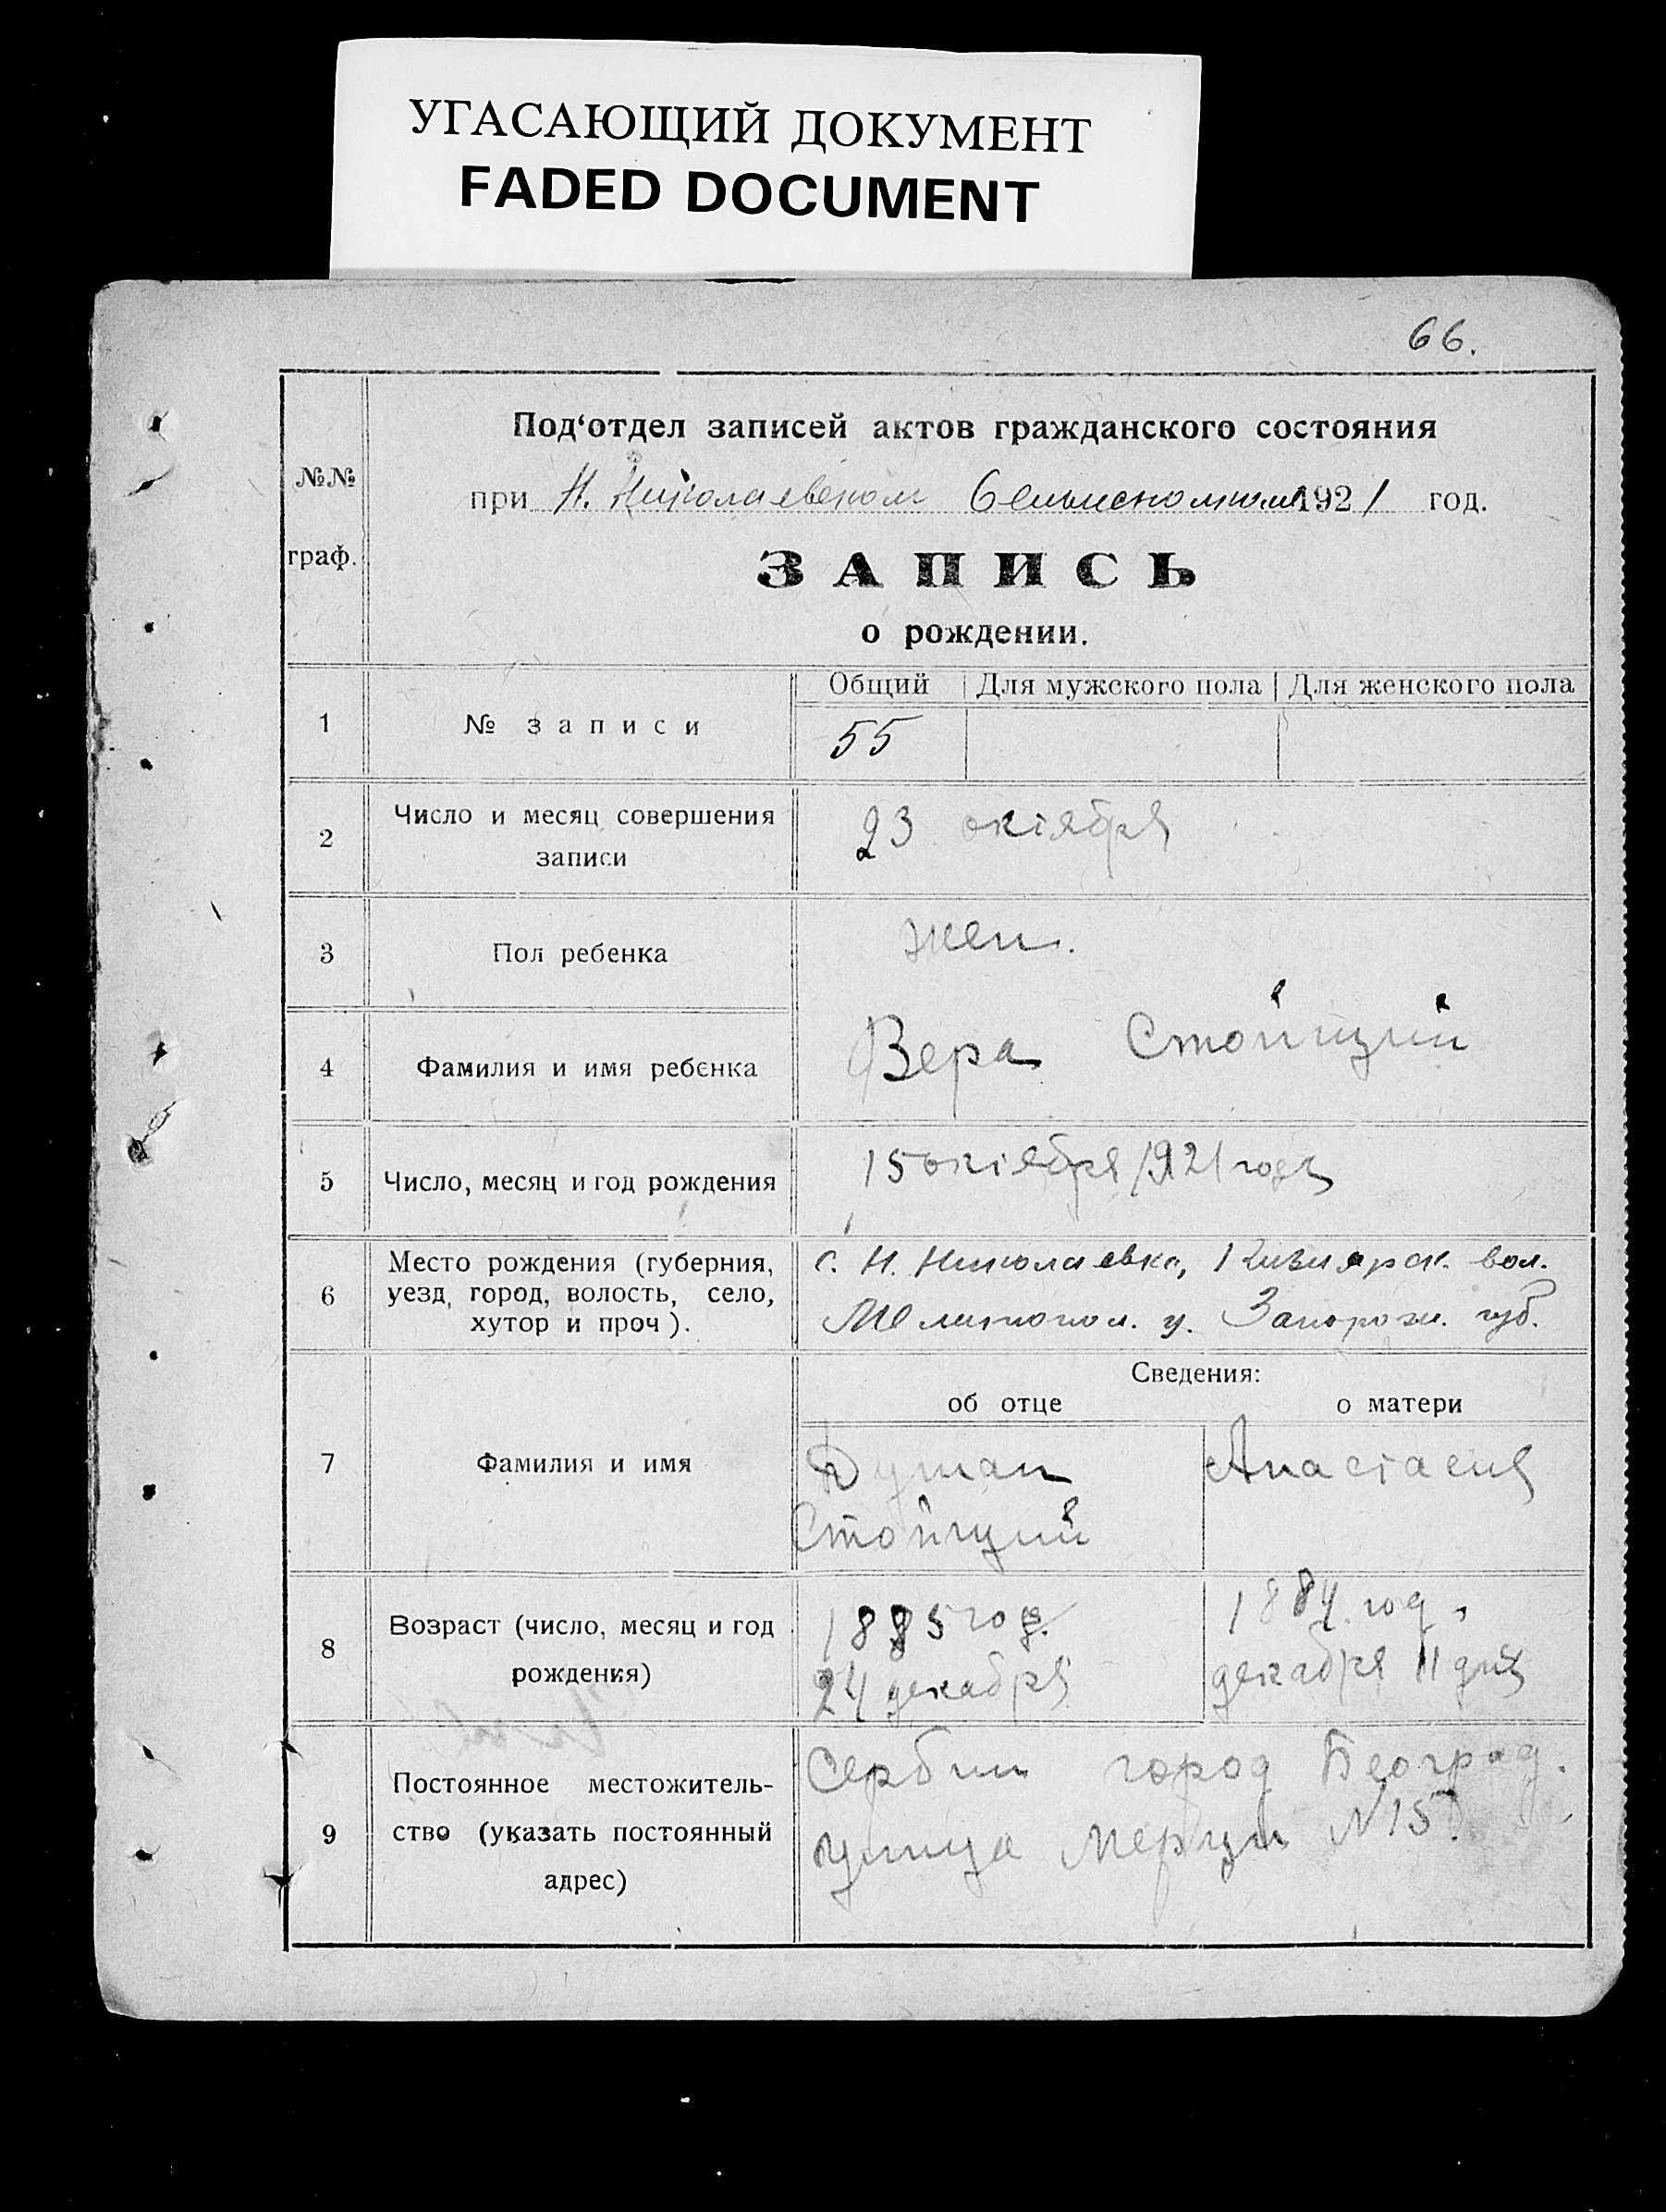 УГАСАЮЩИЙ ДОКУМЕНТ
FADED DOCUMENT
66.
№№ граф.
Под‘отдел записей актов гражданского состояния
при Н. Николаевском 1921 год.
ЗАПИСЬ
о рождении.
Общий Для мужского пола Для женского пола
1 № записи 55
2 Число и месяц совершения
записи
23 октября
3 Пол ребенка жен.
4 Фамилия и имя ребенка Вера Стойций
5 Число, месяц и год рождения 15 октября 1921 года
6 Место рождения (губерния,
уезд, город, волость, село,
хутор и проч).
с. Н. Николаевка, Кизиярск. вол.
Мелитопол. у. Запорож. губ.
Сведения:
об отце о матери
7 Фамилия и имя
Душан
Стойций
Анастасия
8 Возраст (число, месяц и год
рождения)
1885 год.
24 декабря
1884 год,
декабря 11 дня
9 Постоянное местожитель-
ство (указать постоянный
адрес)
Сербии город Београд.
улица N 15.